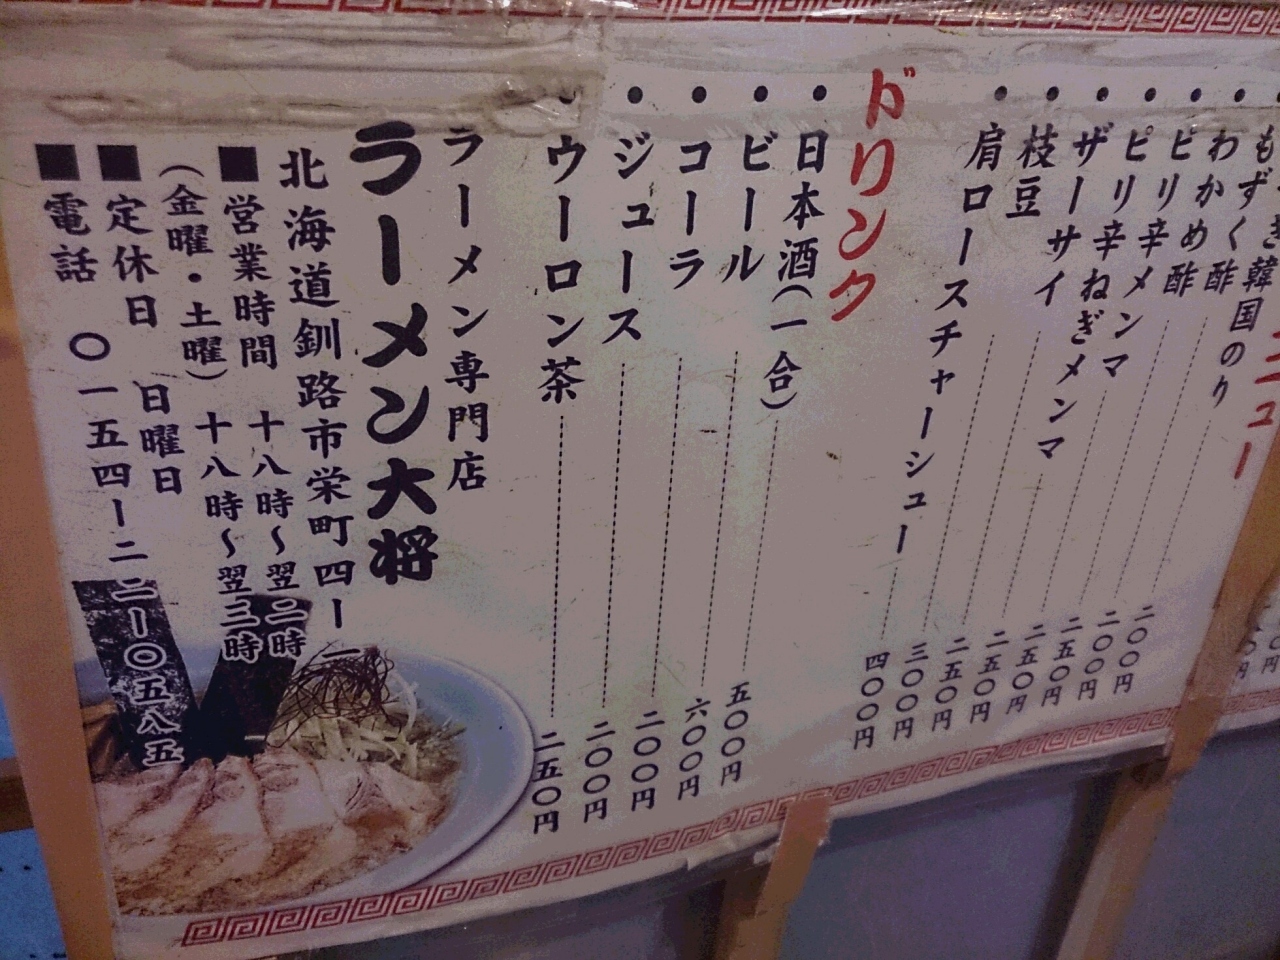 ニュー
韓国のり
もずく酢
わかめ酢
ピリ辛メンマ
ピリ辛ねぎメンマ
ザーサイ
枝豆
肩ロースチャーシュー
二〇〇円
二〇〇円
二五〇円
二五〇円
二五〇円
二五〇円
三〇〇円
四〇〇円
ドリンク
日本酒(一合) 五〇〇円
ビール 六〇〇円
コーラ 二〇〇円
ジュース 二〇〇円
ウーロン茶 二五〇円
ラーメン専門店
ラーメン大将
北海道釧路市栄町四ー一
■営業時間 十八時〜翌二時
(金曜・土曜) 十八時〜翌三時
■定休日 日曜日
■電話 〇一五四ー二二ー〇五八五